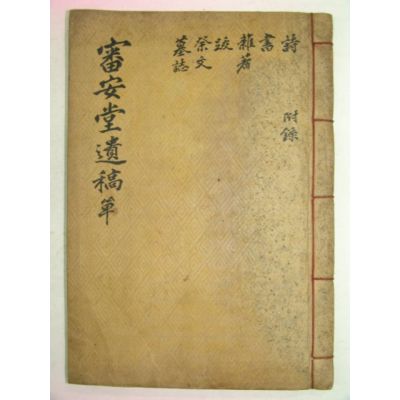 審安堂遺稿單
詩
書
雜著
跋
祭文
墓誌
附錄